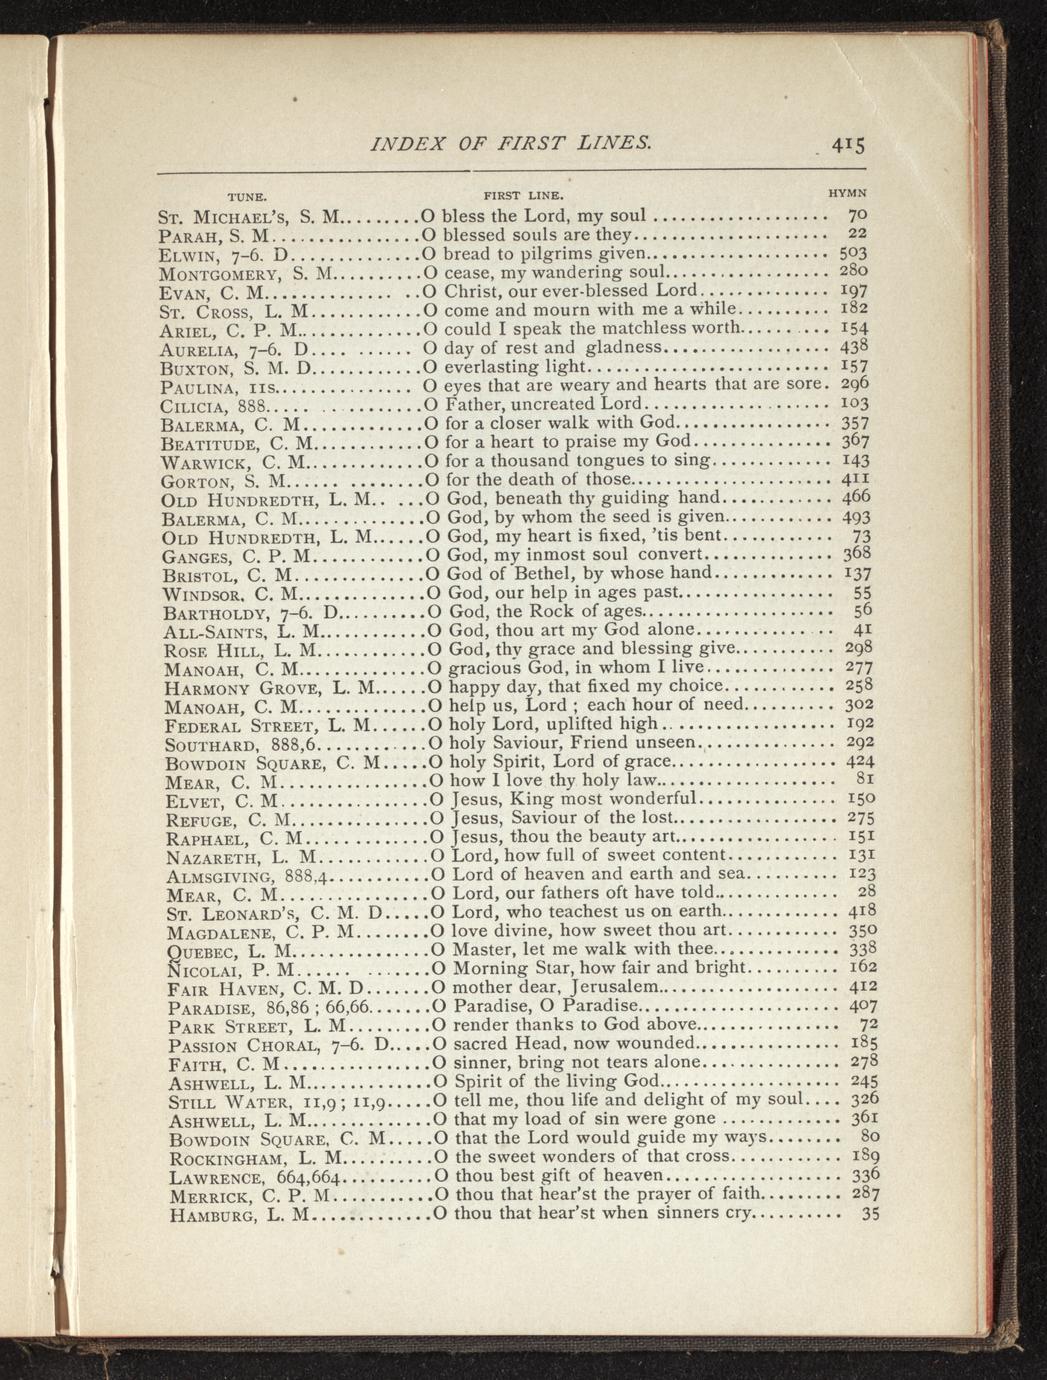 INDEX OF FIRST LINES. 415
TUNE. FIRST LINE. HYMN
ST. MICHAEL'S, S. M.........O bless the Lord, my soul ................... 70
PARAH, S. M................O blessed souls are they..................... 22
ELWIN, 7-6. D..............O bread to pilgrims given.................... 503
MONTGOMERY, S. M..........O cease, my wandering soul.................. 280
EVAN, C. M.............. ..O Christ, our ever-blessed Lord.............. 197
ST. CROSS, L. M............O come and mourn with me a while.......... 182
ARIEL, C. P. M.............O could I speak the matchless worth.......... 154
AURELIA, 7-6. D.... ...... O day of rest and gladness.................. 438
BUXTON, S. M. D............O everlasting light.......................... 157
PAULINA, 11s............... O eyes that are weary and hearts that are sore. 296
CILICIA, 888..... ...........O Father, uncreated Lord.................... 103
BALERMA, C. M.............O for a closer walk with God................. 357
BEATITUDE, C. M............O for a heart to praise my God............... 367
WARWICK, C. M.............O for a thousand tongues to sing............. 143
GORTON, S. M...... ........O for the death of those...................... 411
OLD HUNDREDTH, L. M.. ...O God, beneath thy guiding hand............ 466
BALERMA, C. M..............O God, by whom the seed is given............ 493
OLD HUNDREDTH, L. M......O God, my heart is fixed, 'tis bent............ 73
GANGES, C. P. M............O God, my inmost soul convert.............. 368
BRISTOL, C. M..............O God of Bethel, by whose hand............. 137
WINDSOR, C. M..............O God, our help in ages past................. 55
BARTHOLDY, 7-6. D..........O God, the Rock of ages..................... 56
ALL-SAINTS, L. M............O God, thou art my God alone............... 41
ROSE HILL, L. M............O God, thy grace and blessing give........... 298
MANOAH, C. M..............O gracious God, in whom I live.............. 277
HARMONY GROVE, L. M......O happy day, that fixed my choice............ 258
MANOAH, C. M..............O help us, Lord ; each hour of need.......... 302
FEDERAL STREET, L. M......O holy Lord, uplifted high................... 192
SOUTHARD, 888,6............O holy Saviour, Friend unseen............... 292
BOWDOIN SQUARE, C. M.....O holy Spirit, Lord of grace.................. 424
MEAR, C. M................O how I love thy holy law.................... 81
ELVET, C. M................O Jesus, King most wonderful............... 150
REFUGE, C. M..............O Jesus, Saviour of the lost.................. 275
RAPHAEL, C. M..............O Jesus, thou the beauty art................. 151
NAZARETH, L. M............O Lord, how full of sweet content............ 131
ALMSGIVING, 888,4...........O Lord of heaven and earth and sea.......... 123
MEAR, C. M................O Lord, our fathers oft have told............. 28
ST. LEONARD'S, C. M. D.....O Lord, who teachest us on earth............. 418
MAGDALENE, C. P. M........O love divine, how sweet thou art............ 350
QUEBEC, L. M...............O Master, let me walk with thee.............. 338
NICOLAI, P. M...... ........O Morning Star, how fair and bright.......... 162
FAIR HAVEN, C. M. D.......O mother dear, Jerusalem.................... 412
PARADISE, 86,86 ; 66,66.......O Paradise, O Paradise...................... 407
PARK STREET, L. M.........O render thanks to God above............... 72
PASSION CHORAL, 7-6. D.....O sacred Head, now wounded................ 185
FAITH, C. M................O sinner, bring not tears alone............... 278
ASHWELL, L. M.............O Spirit of the living God.................... 245
STILL WATER, 11,9 ; 11,9.....O tell me, thou life and delight of my soul.... 326
ASHWELL, L. M.............O that my load of sin were gone ............. 361
BOWDOIN SQUARE, C. M.....O that the Lord would guide my ways........ 80
ROCKINGHAM, L. M..........O the sweet wonders of that cross............ 189
LAWRENCE, 664,664..........O thou best gift of heaven................... 336
MERRICK, C. P. M...........O thou that hear'st the prayer of faith......... 287
HAMBURG, L. M.............O thou that hear'st when sinners cry.......... 35